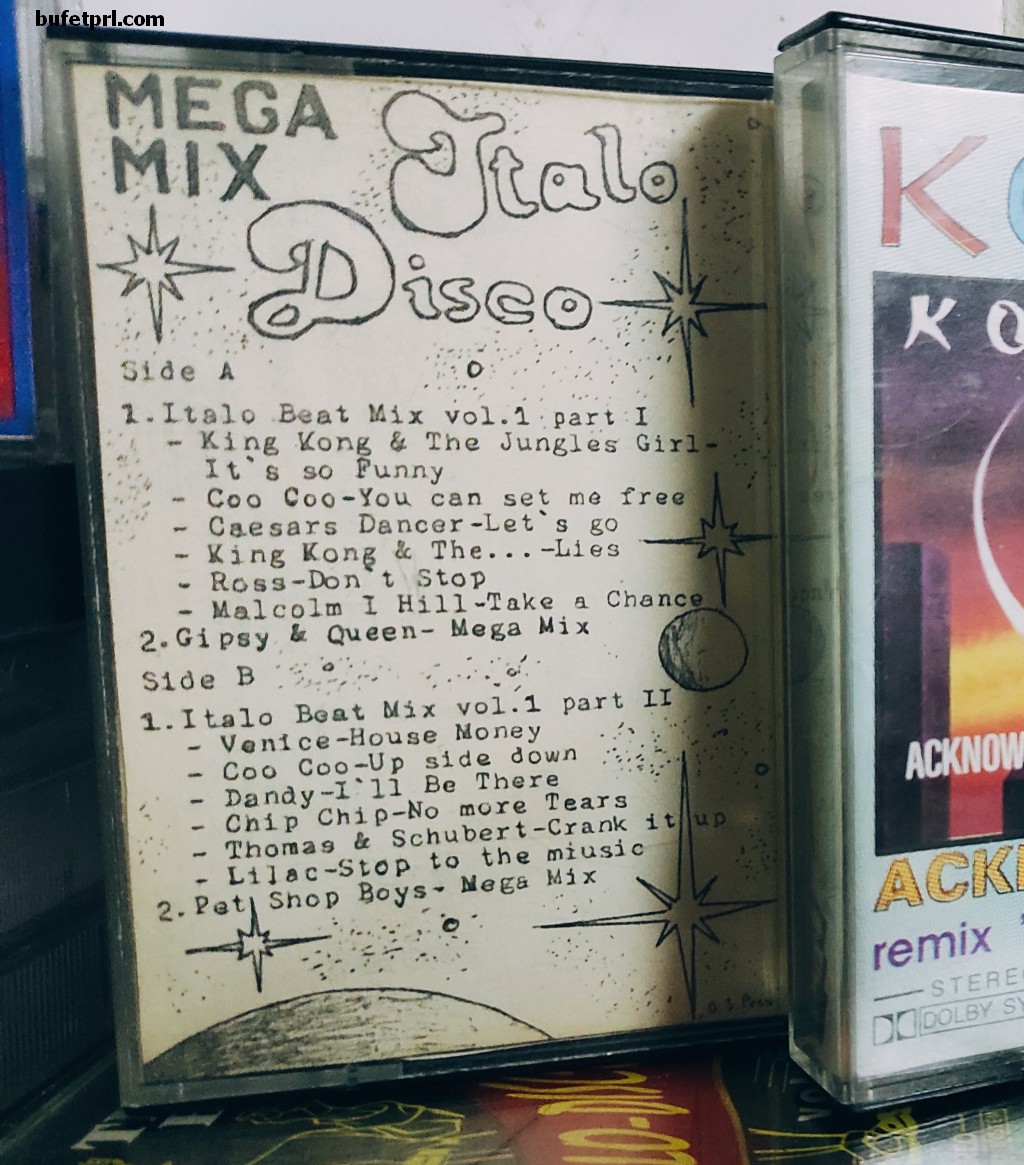 bufetprl.com
MEGA
MIX
Italo
Disco
Side A
1.Italo Beat Mix vol.1 part I
- King Kong & The Jungles Girl-
It`s so Funny
- Coo Coo-You can set me free
- Caesars Dancer-Let`s go
- King Kong & The...-Lies
- Ross-Don`t Stop
- Malcolm I Hill-Take a Chance
2.Gipsy & Queen- Mega Mix
Side B
1.Italo Beat Mix vol.1 part II
- Venice-House Money
- Coo Coo-Up side down
- Dandy-I`ll Be There
- Chip Chip-No more Tears
- Thomas & Schubert-Crank it up
- Lilac-Stop to the miusic
2.Pet Shop Boys- Mega Mix
K
K O
ACKNOW
ACK
remix
STERE
DOLBY SY